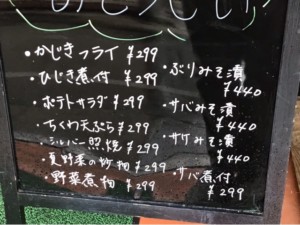 ・かじきフライ ¥299
・ひじき煮付 ¥299
・ポテトサラダ ¥299
・ちくわ天ぷら ¥299
・シルバー照焼 ¥299
・夏野菜の炒物 ¥299
・野菜煮物 ¥299
・ぶりみそ漬
¥440
・サバみそ漬
¥440
・サケみそ漬
¥440
・サバ煮付
¥299